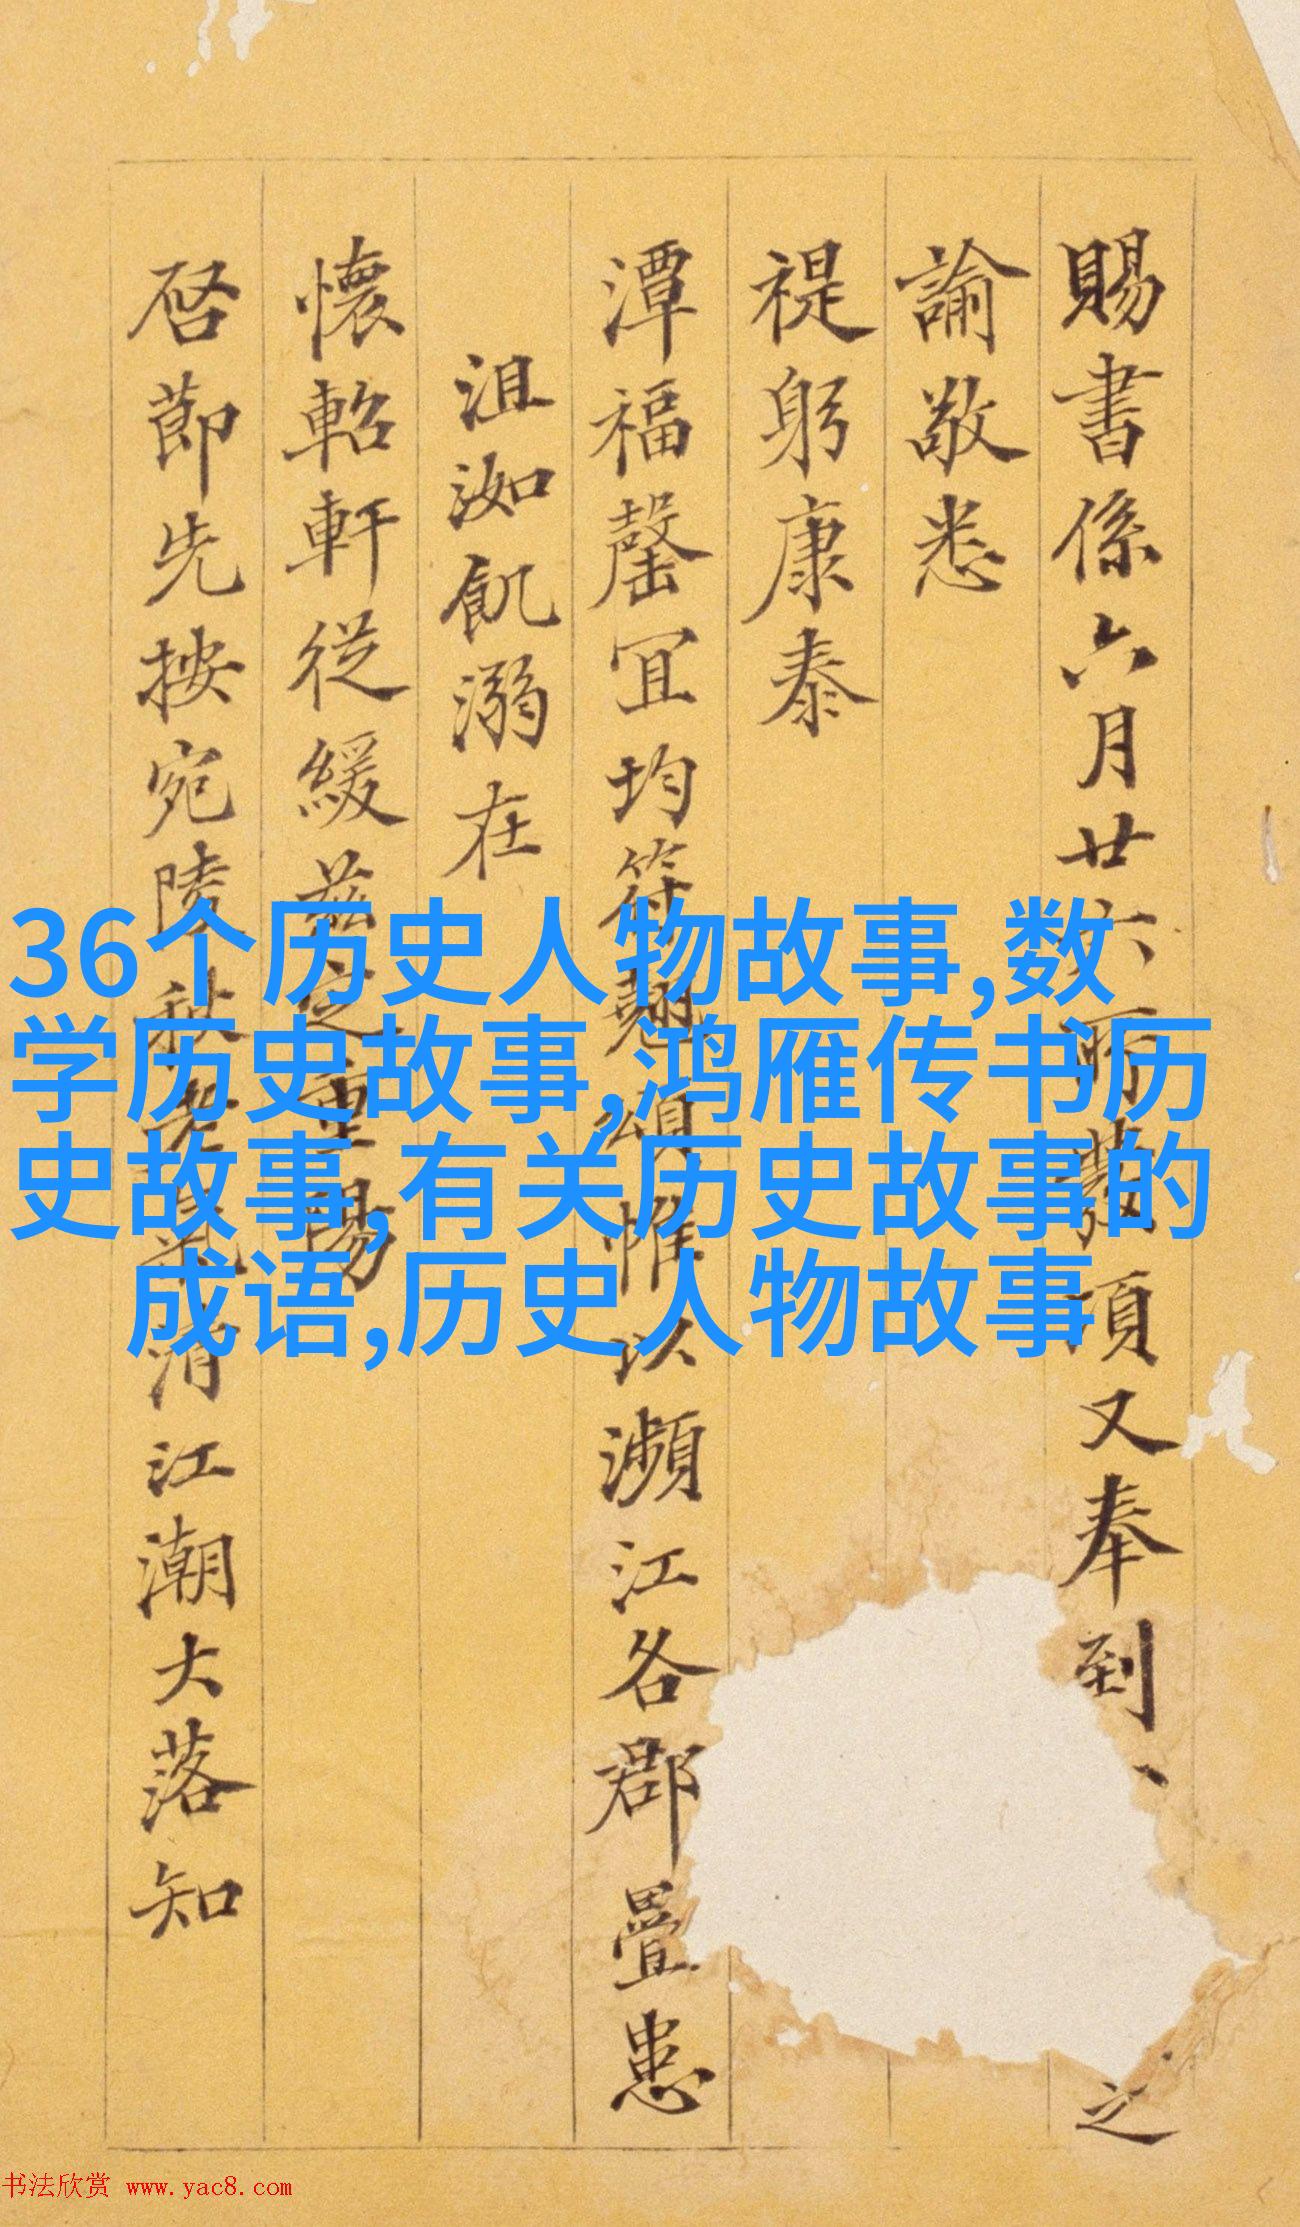 賜書係六月廿六所發項又奉到
之
諭敬悉
禔躬康泰
潭福罄宜均符翹頌惟以瀕江各郡疊患
沮洳飢溺在
懷軺軒從緩茲定重陽
啓節先按宛陵秋
清江潮大落知
36个历史人物故事,数
学历史故事,鸿雁传书历
史故事,有关历史故事的
成语,历史人物故事
书法欣赏 www.yac8.com